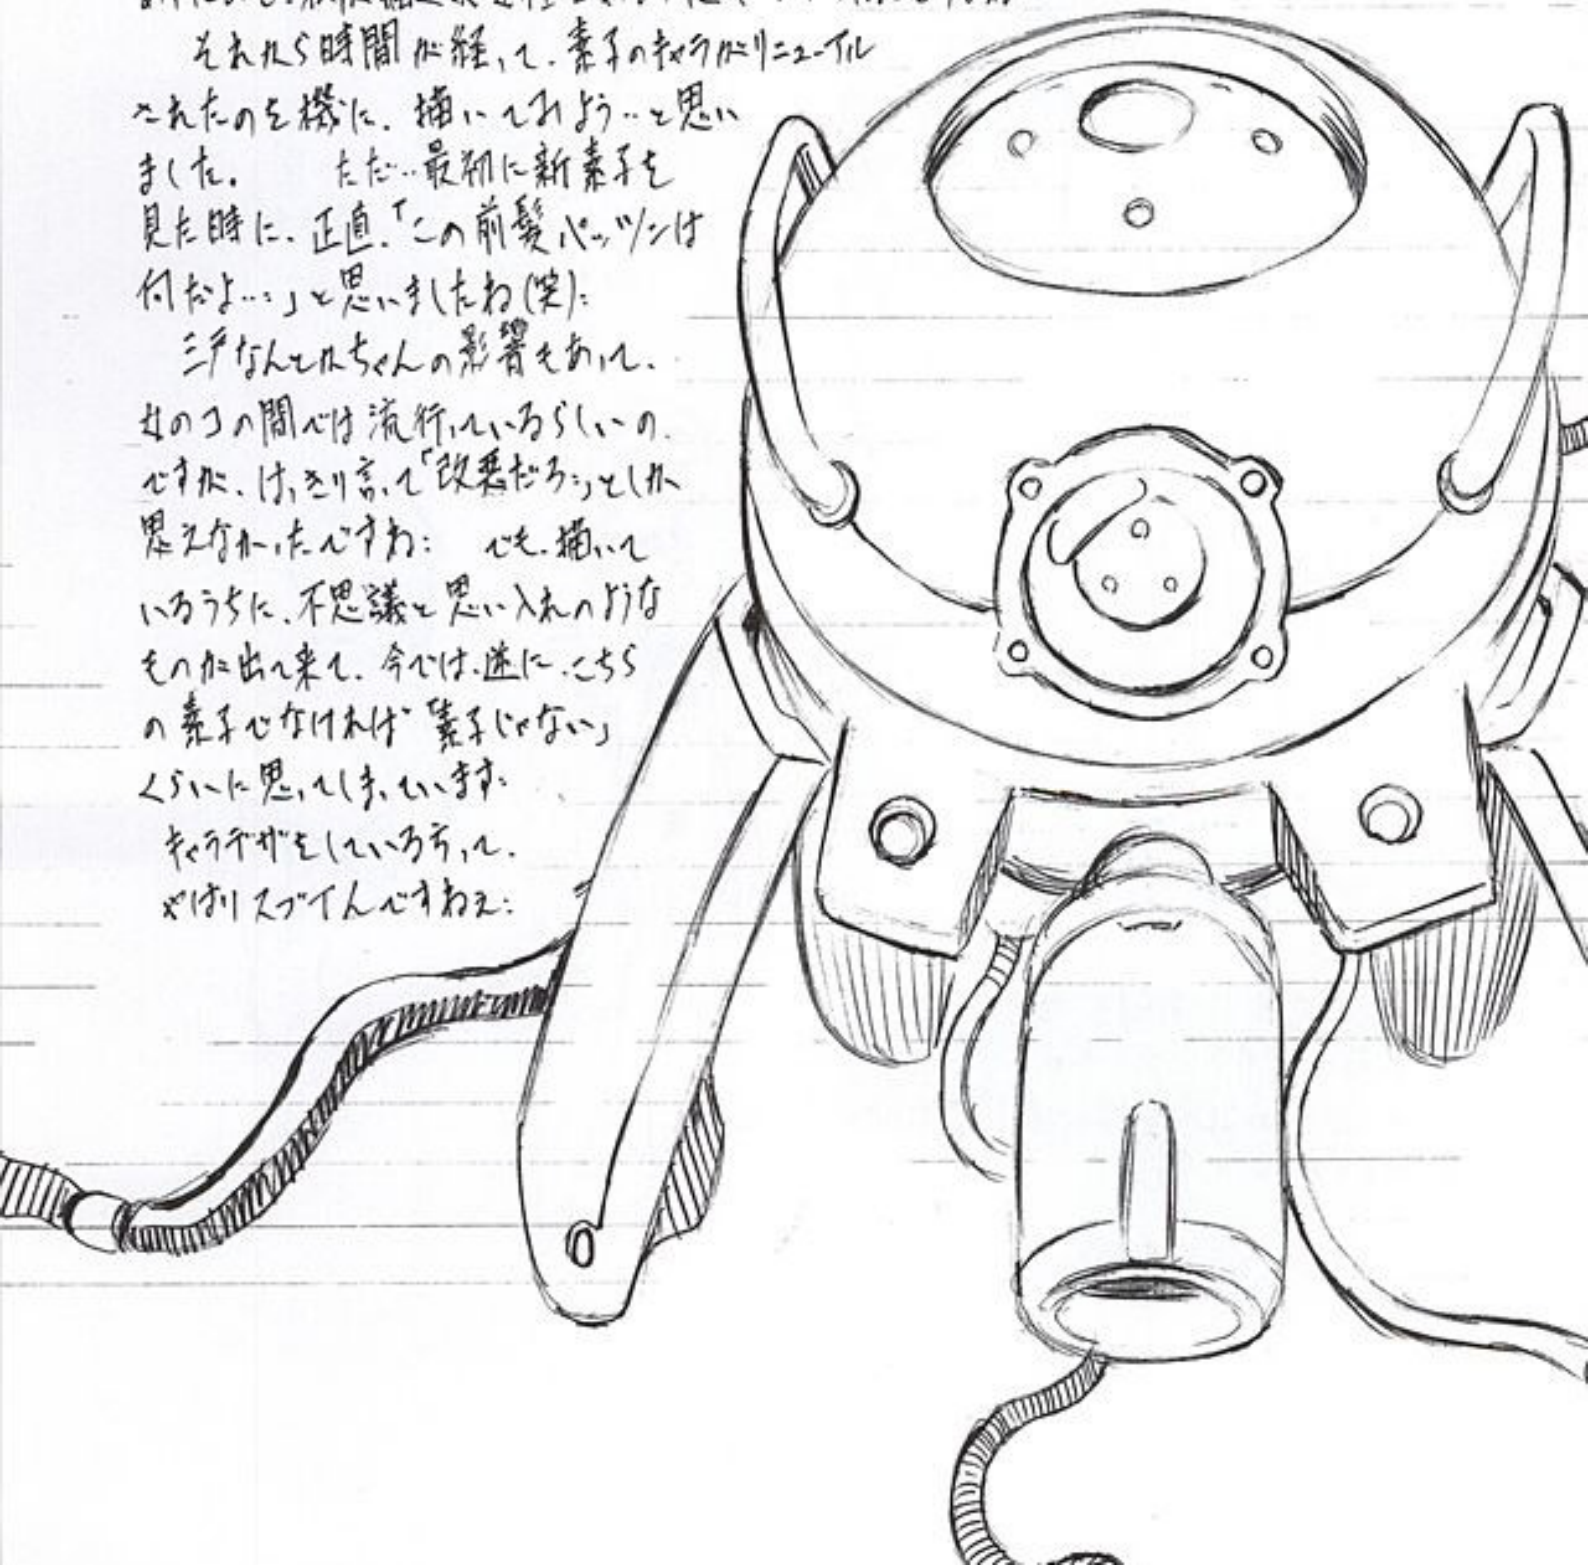 それから時間が経って、素子のキャラがリニューアル
されたのを機に、描いてみよう‥と思い
ました。 ただ‥最初に新素子を
見た時に、正直、「この前髪パッツンは
何だよ‥:」と思いましたね(笑):
三戸なんとかちゃんの影響もあって、
女のコの間では流行っているらしいの
ですが、はっきり言って「改悪だろ:」としか
思えなかったですね: でも、描いて
いるうちに、不思議と思い入れのような
ものが出て来て、今では、逆に、こちら
の素子でなければ「素子じゃない」
くらいに思ってしまっています:
キャラデザをしている方って、
やはりスゴイんですねぇ: